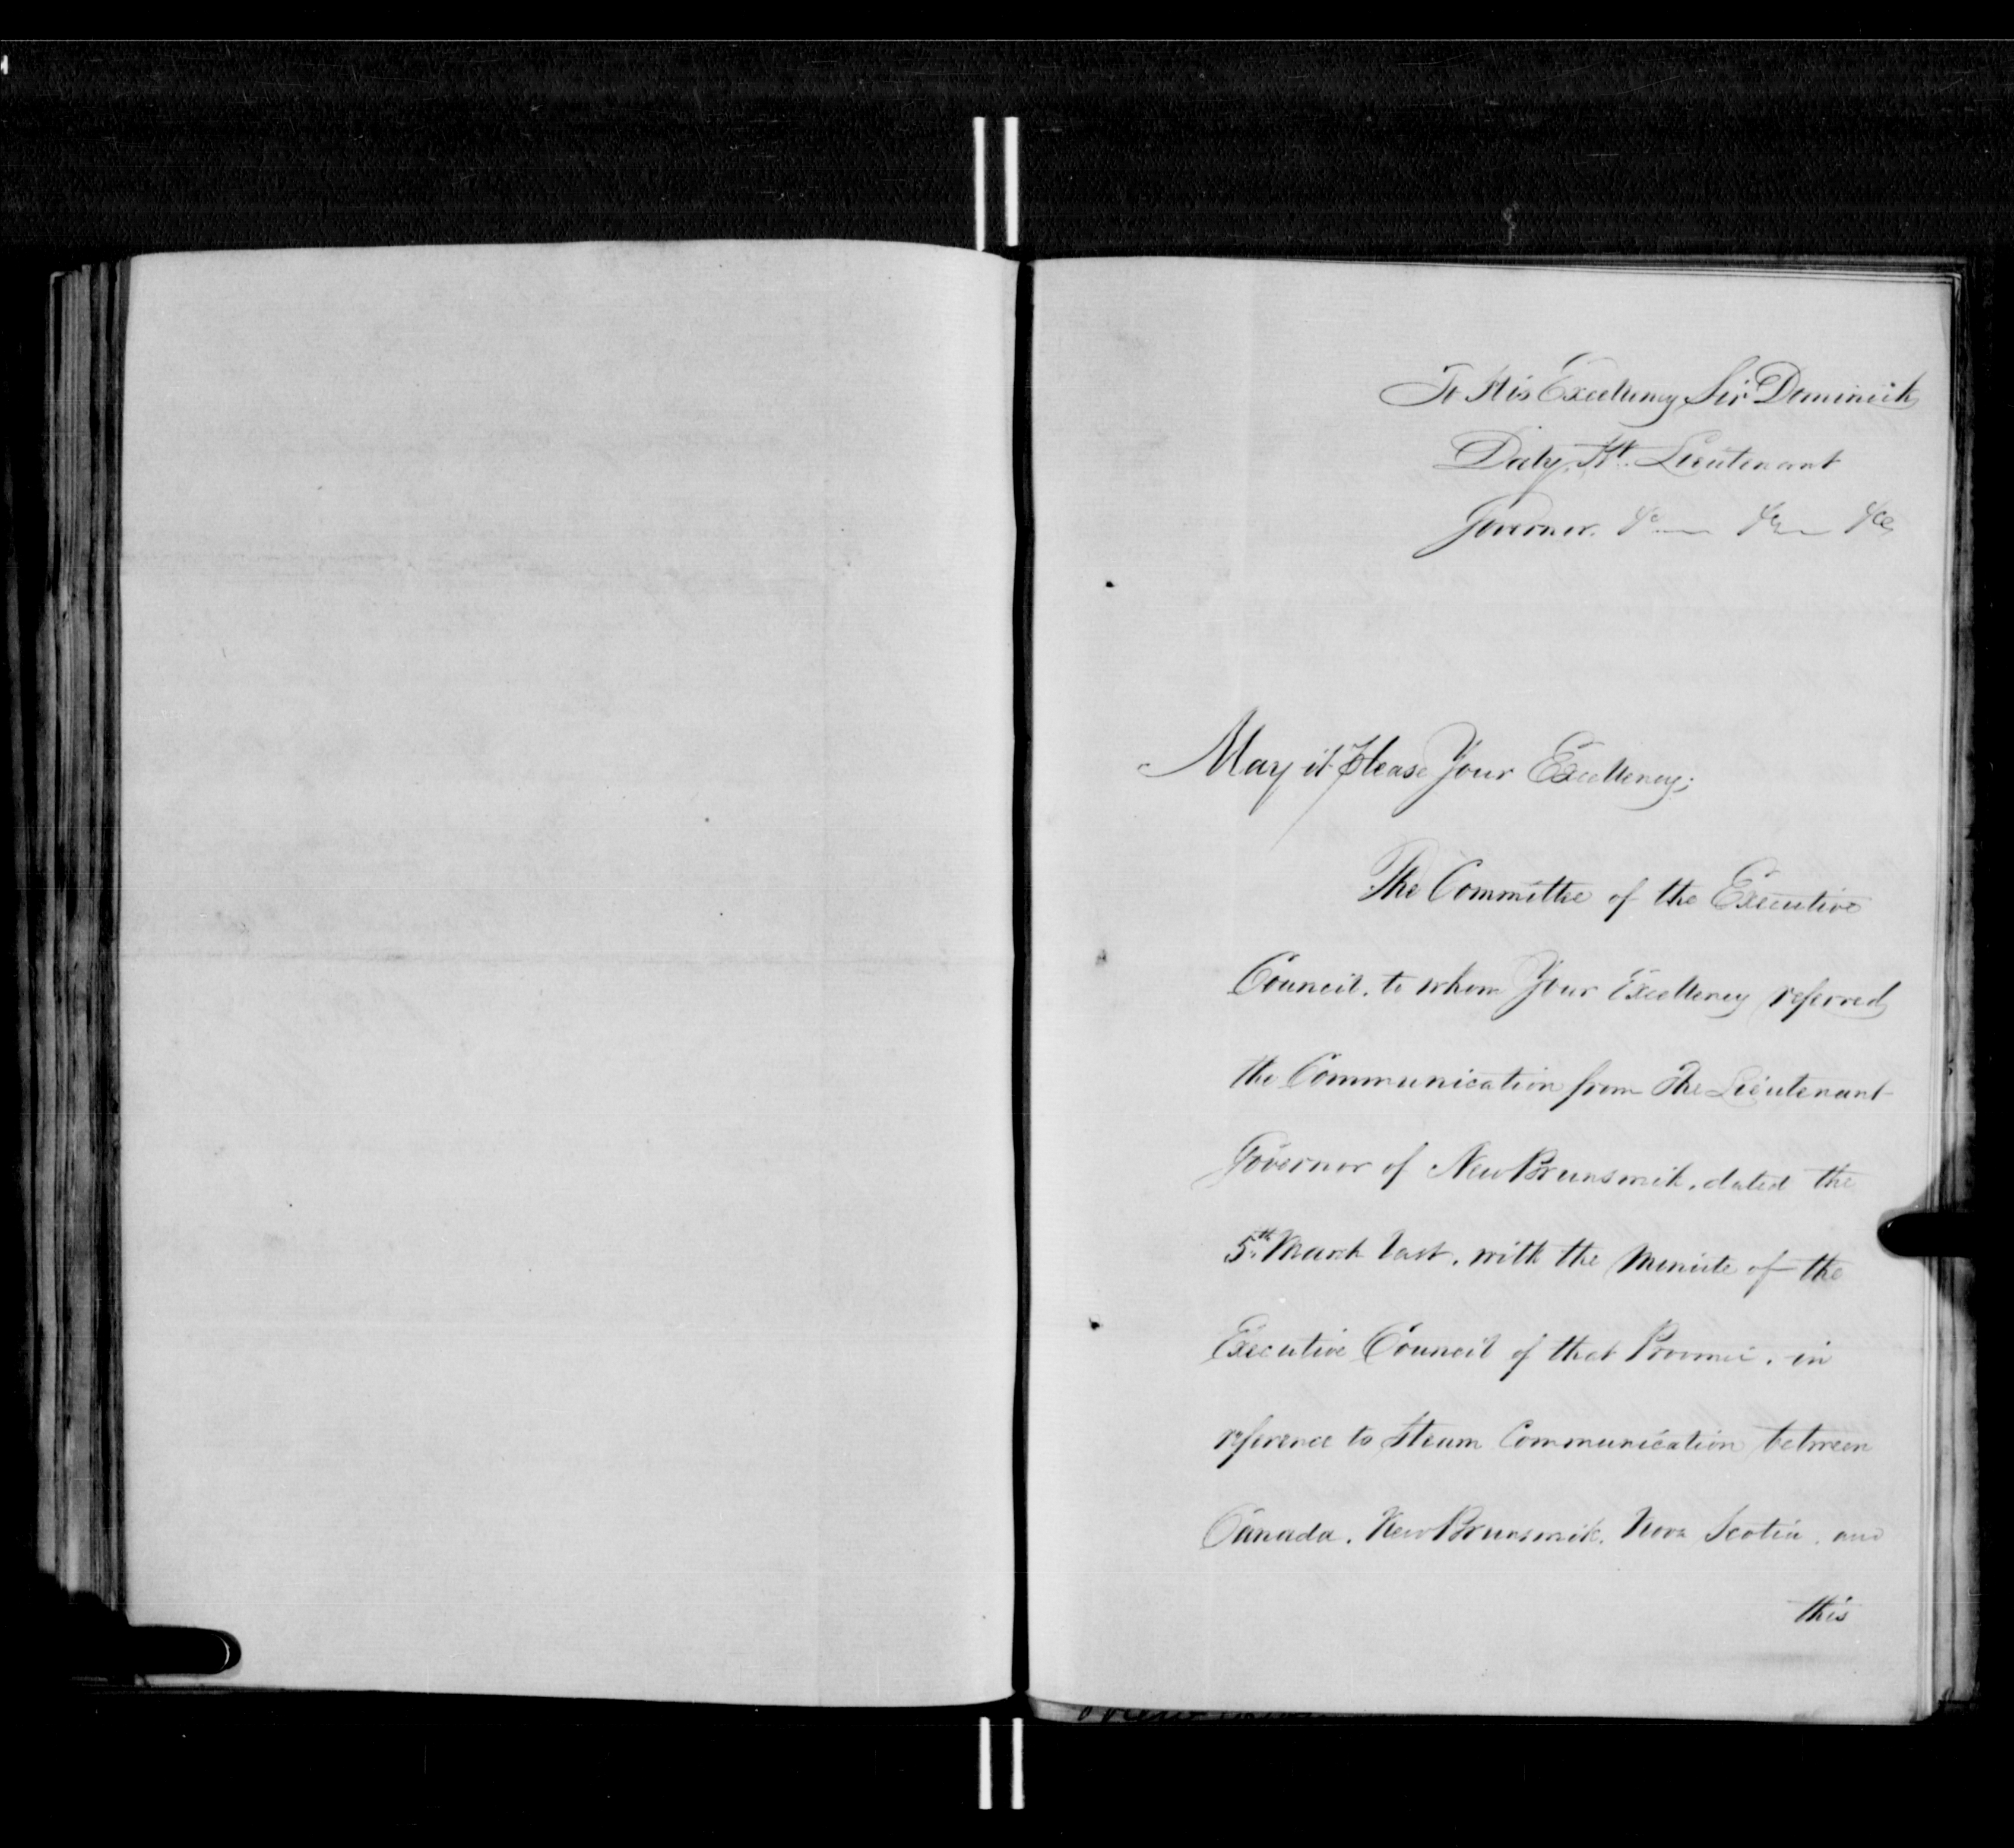 To His Excellency Sir Dominick
Daly, Kt. Lieutenant
Governor. &c &c &c
May it Please Your Excellency;
The Committee of the Executive
Council, to whom Your Excellency referred
the Communication from The Lieutenant
Governor of New Brunswick, dated the
5th March last, with the Minute of the
Executive Council of that Province, in
reference to Steam Communication between
Canada, New Brunswick, Nova Scotia, and
this